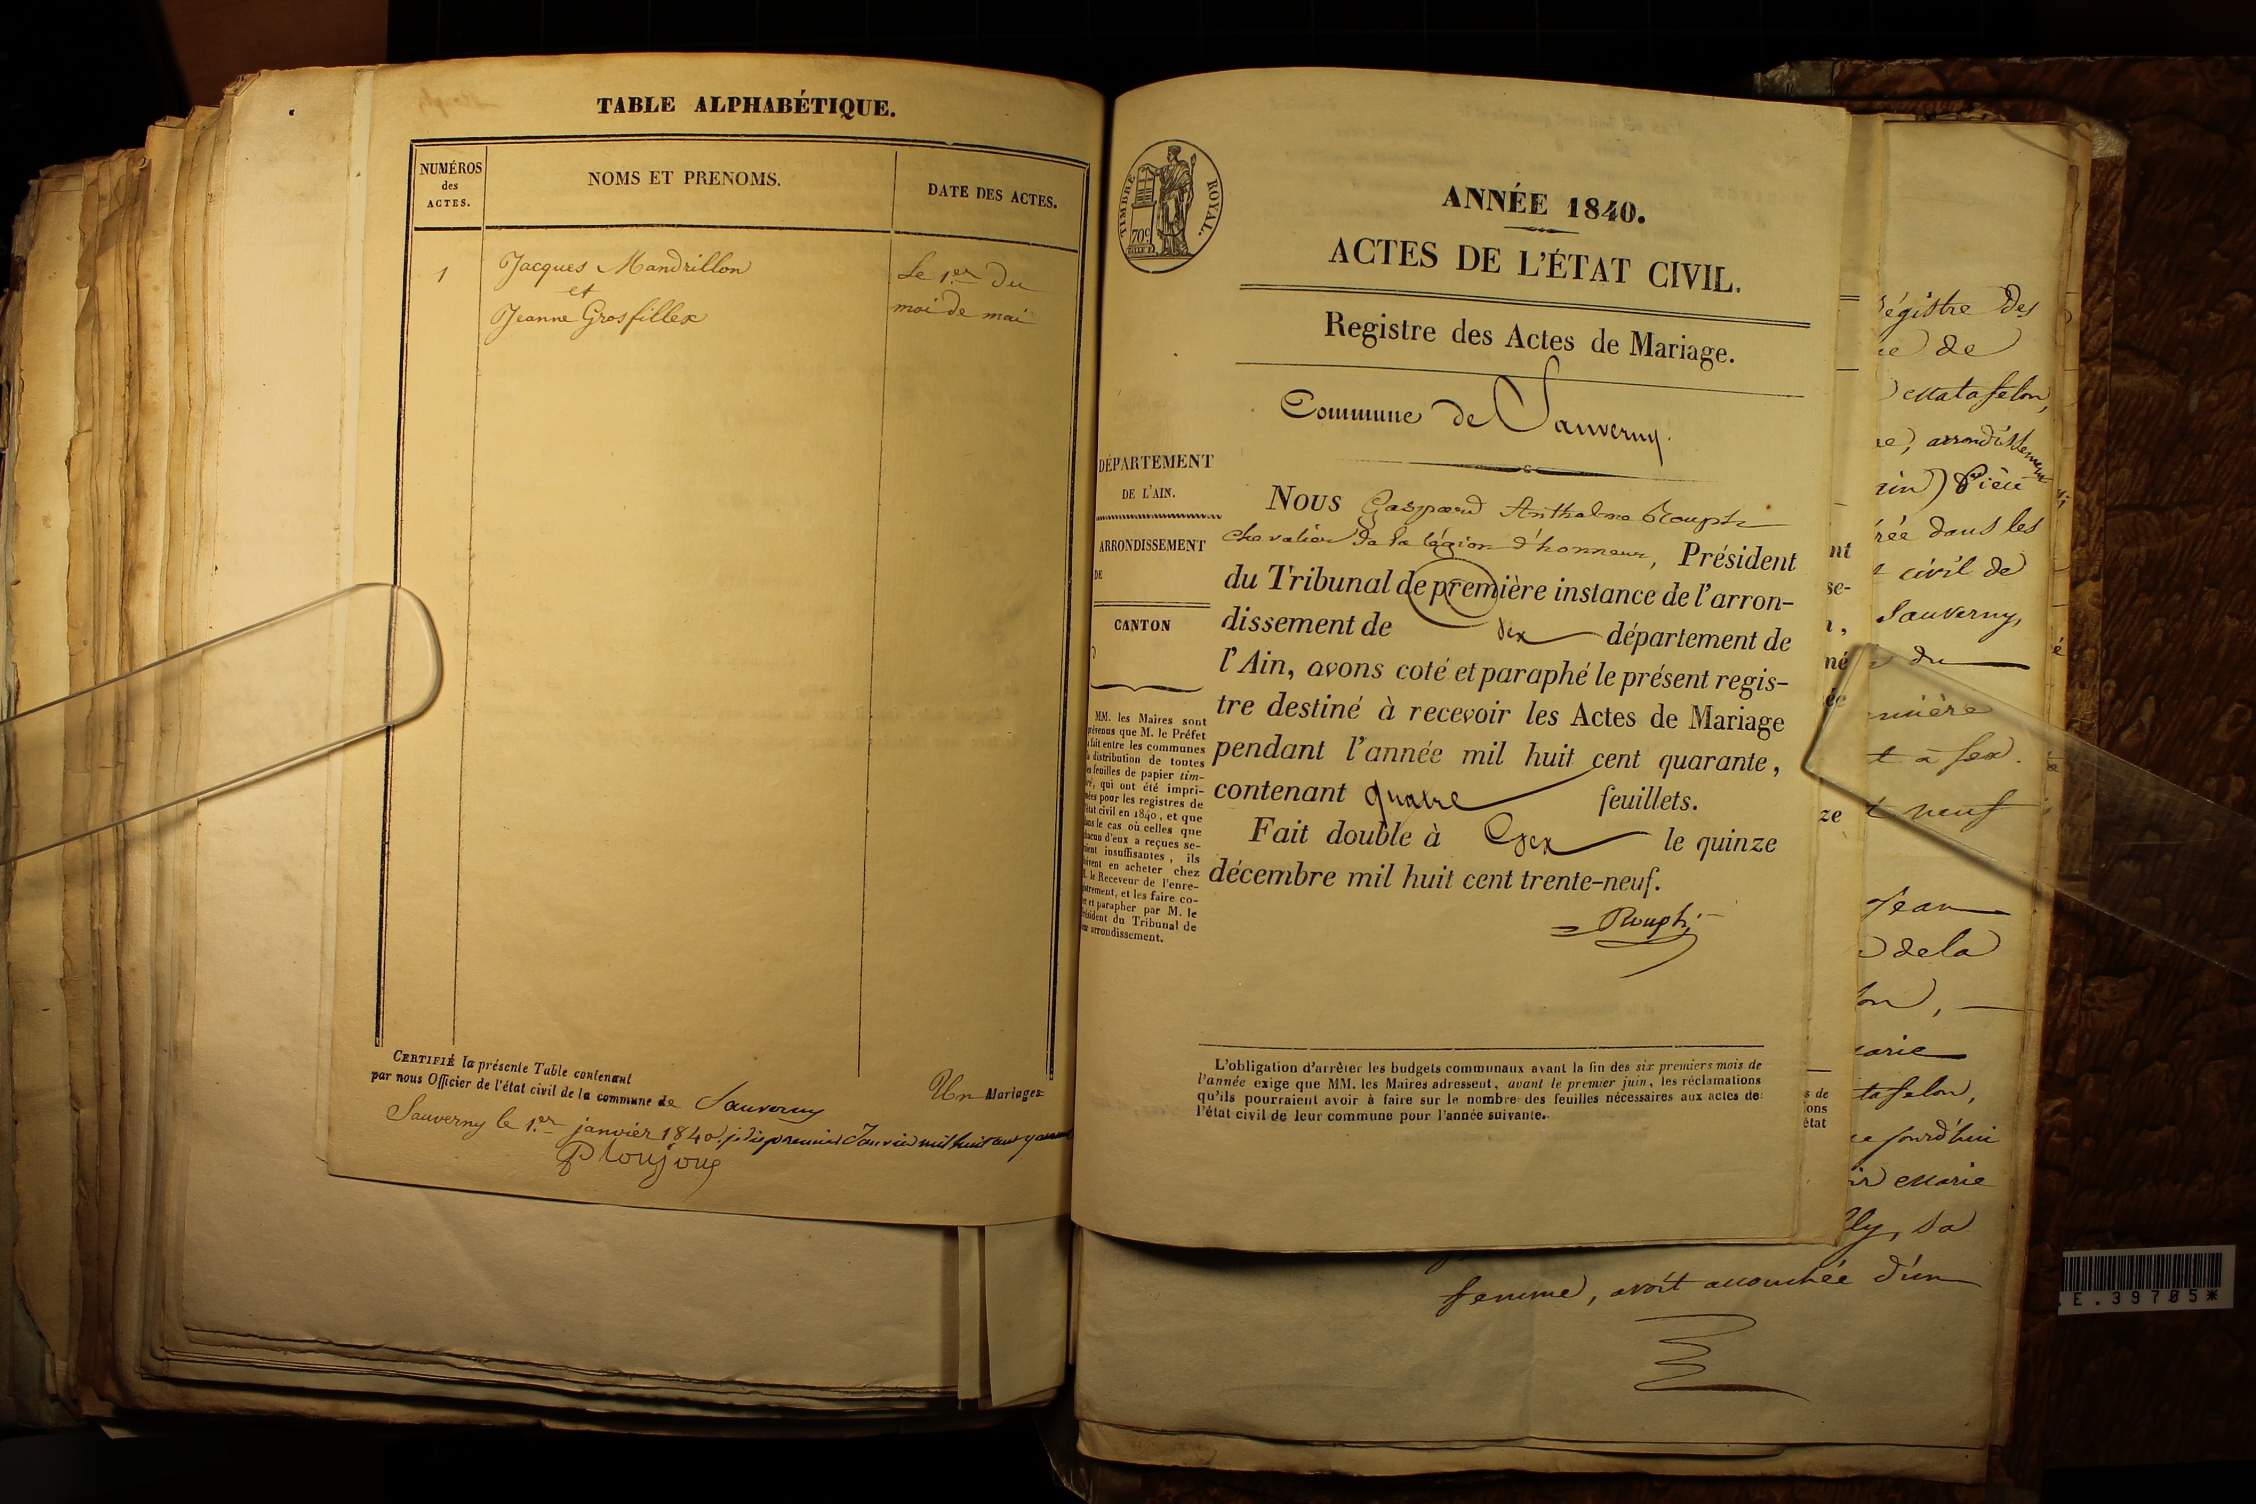 TABLE ALPHABÉTIQUE.
NUMÉROS
des
ACTES.
NOMS ET PRENOMS.
DATE DES ACTES.
1
Jacques Mandrillon
et
Jeanne Grosfillex
Le 1.er Du
moi de mai
CERTIFIÉ la présente Table contenant
Un Mariages
par nous Officier de l'état civil de la commune de Sauverny
Sauverny le 1.er janvier 1840
TIMBRE ROYAL.
70c
ANNÉE 1840.
ACTES DE L'ÉTAT CIVIL.
Registre des Actes de Mariage.
Commune de Sauverny.
DÉPARTEMENT
DE L'AIN.
ARRONDISSEMENT
DE
CANTON
MM. les Maires sont
prévenus que M. le Préfet
a fait entre les communes
la distribution de toutes
les feuilles de papier tim-
bré, qui ont été impri-
mées pour les registres de
l'état civil en 1840, et que
dans le cas où celles que
chacun d'eux a reçues se-
raient insuffisantes, ils
doivent en acheter chez
M. le Receveur de l'enre-
gistrement, et les faire co-
ter et parapher par M. le
Président du Tribunal de
leur arrondissement.
Nous Gaspard Anthelme Rouph
chevalier de la légion d'honneur, Président
du Tribunal de première instance de l'arron-
dissement de Gex département de
l'Ain, avons coté et paraphé le présent regis-
tre destiné à recevoir les Actes de Mariage
pendant l'année mil huit cent quarante,
contenant quatre feuillets.
Fait double à Gex le quinze
décembre mil huit cent trente-neuf.
Rouph
L'obligation d'arrêter les budgets communaux avant la fin des six premiers mois de
l'année exige que MM. les Maires adressent, avant le premier juin, les réclamations
qu'ils pourraient avoir à faire sur le nombre des feuilles nécessaires aux actes de
l'état civil de leur commune pour l'année suivante.
nt
se-
né
ze
s de
ions
état
Régistre Des
de
Matafelon,
arrondissement
ain) Pièce
dans les
civil de
Sauverny,
du
à Gex.
neuf
Jean
dela
Marie
jourd'hui
Marie
sa
femme, avoit accouchée d'un
E.39705*